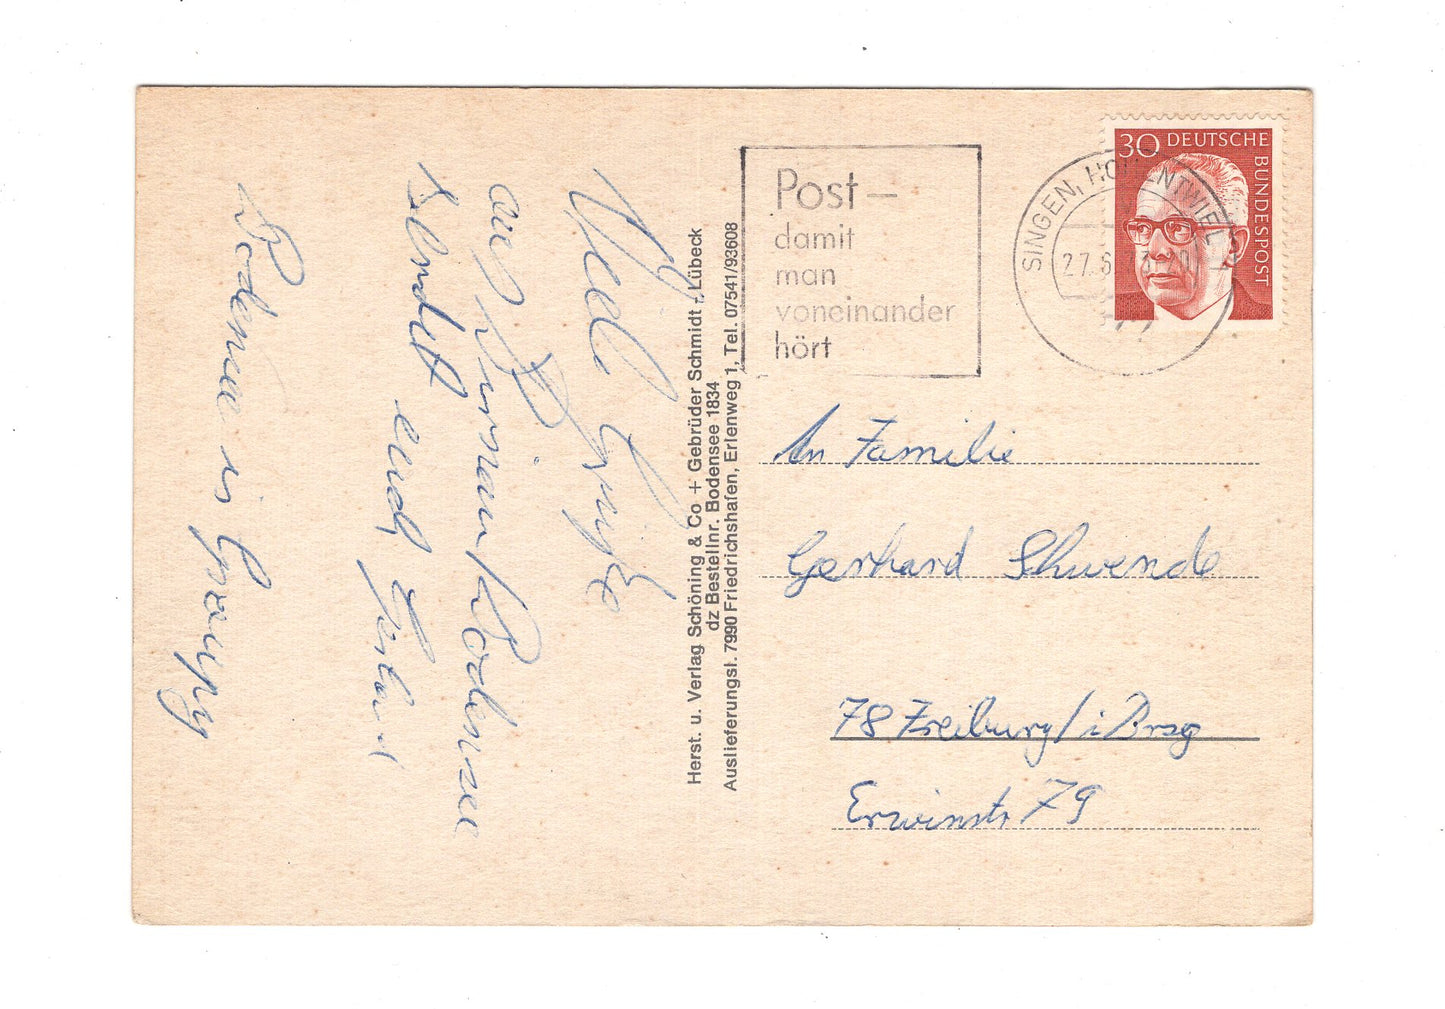 Viele Grüße
aus
Bodensee
sendet euch
Bodman is
Herst. u. Verlag Schöning & Co + Gebrüder Schmidt - Lübeck
dz Bestellnr. Bodensee 1834
Auslieferungsl. 7990 Friedrichshafen, Erlenweg 1, Tel. 07541/93608
Post –
damit
man
voneinander
hört
SINGEN, HOHENTWIEL
27.6.
30 DEUTSCHE
BUNDESPOST
An Familie
Gerhard Schwende
78 Freiburg/i Brsg
Erwinstr 79